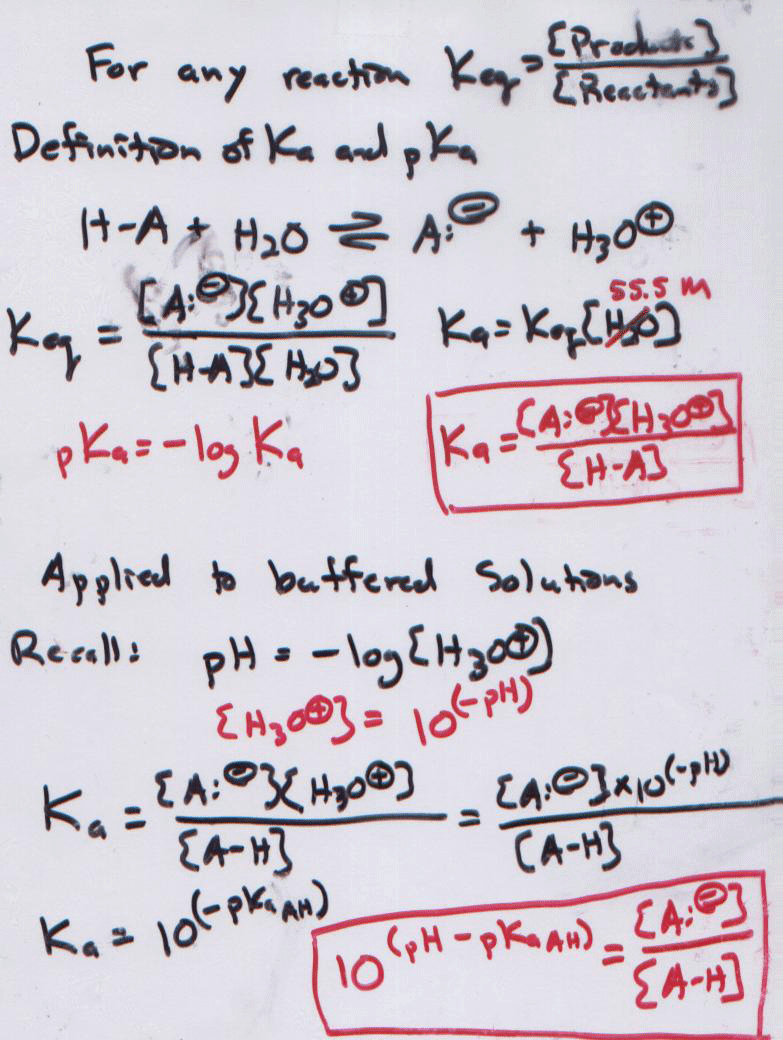 For any reaction Keq = [Products] / [Reactants]
Definition of Ka and pKa
H-A + H₂O ⇌ A:⊖ + H₃O⊕
Keq = [A:⊖][H₃O⊕] / [H-A][H₂O]
Ka = Keq[H₂O] 55.5 M
pKa = -log Ka
Ka = [A:⊖][H₃O⊕] / [H-A]
Applied to buffered Solutions
Recall: pH = -log[H₃O⊕]
[H₃O⊕] = 10^(-pH)
Ka = [A:⊖][H₃O⊕] / [A-H] = [A:⊖] × 10^(-pH) / [A-H]
Ka = 10^(-pKa AH)
10^(pH - pKa AH) = [A:⊖] / [A-H]